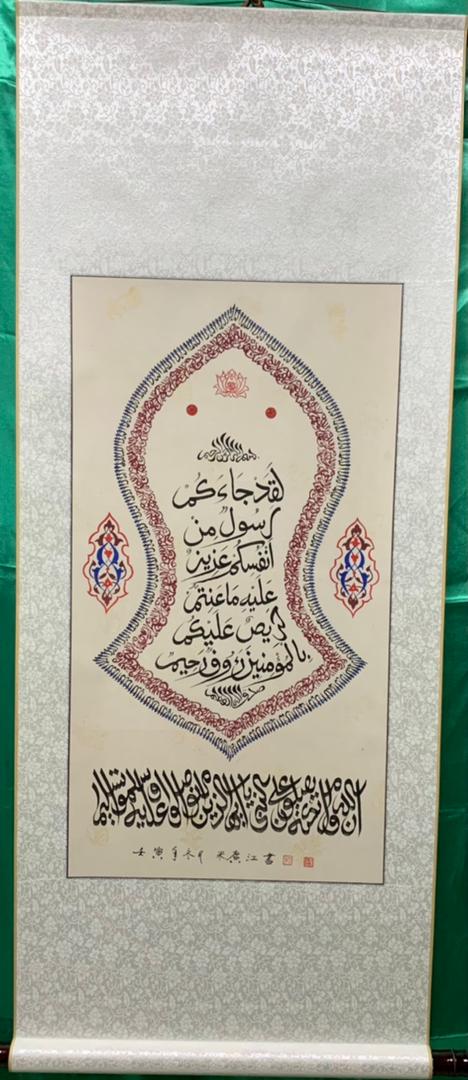 لقد جاءكم
رسول من
أنفسكم عزيز
عليه ما عنتم
حريص عليكم
بالمؤمنين رءوف رحيم
ان الله وملائكته يصلون على النبي يا ايها الذين امنوا صلوا عليه وسلموا تسليما
壬寅年冬月 米廣江書